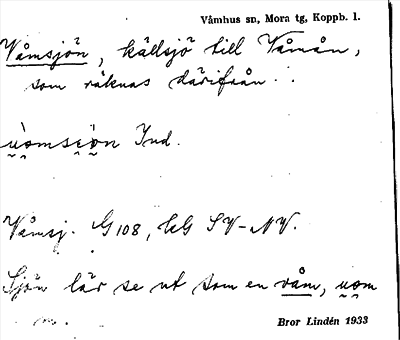 Våmhus sn, Mora tg, Koppb. l.
Våmsjön, källsjö till Våmån,
som räknas därifrån.
u̯o̯msi̯ö̯n Ind.
Våmsj. G 108, bG SV-NV.
Sjön lär se ut som en våm, u̯o̯m
m.
Bror Lindén 1933